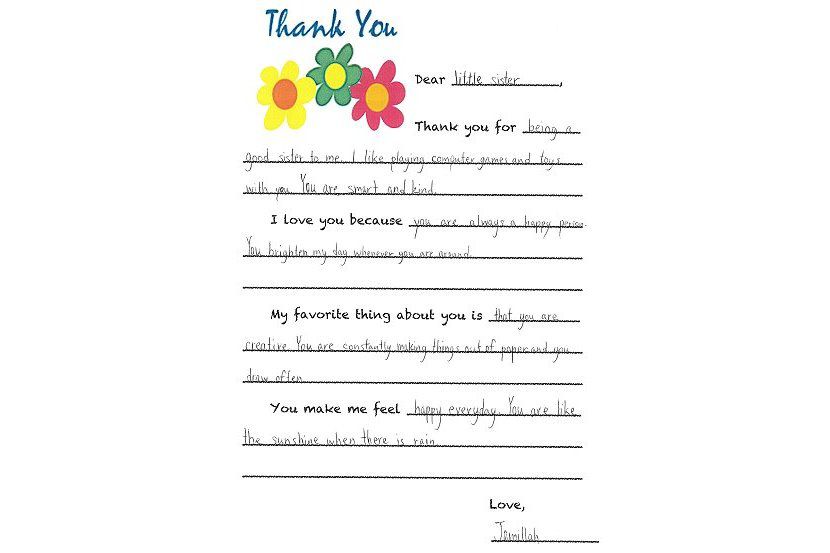 Thank You
Dear little sister,
Thank you for being a
good sister to me. I like playing computer games and toys
with you. You are smart and kind.
I love you because you are always a happy person.
You brighten my day whenever you are around.
My favorite thing about you is that you are
creative. You are constantly making things out of paper and you
draw often.
You make me feel happy everyday. You are like
the sunshine when there is rain.
Love,
Jamillah